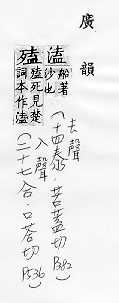 廣韻
溘船著沙也 去聲(十四泰·苦蓋切 P382)
𣩄𣩄死見楚詞本作溘 入聲(二十七合·口荅切 P536)